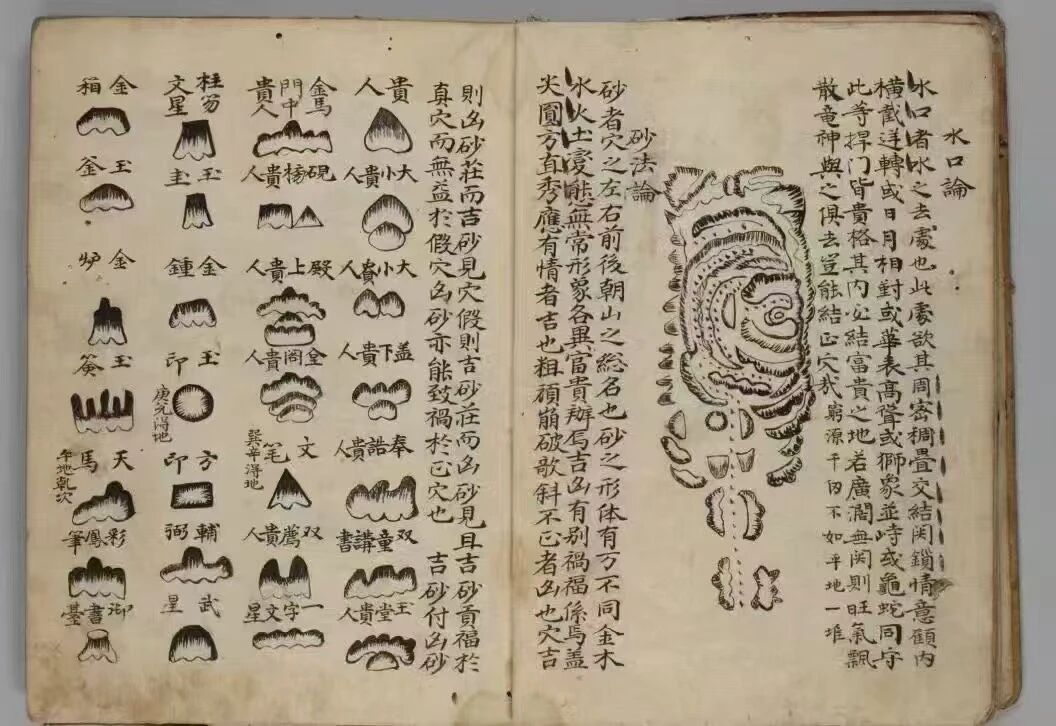 水口論
水口者水之去處也此處欲其周密稠疊交結関鎖情意顧内
橫截逆轉或日月相對或華表高聳或獅象並峙或龜蛇同守
此等捍門皆貴格其内必結富貴之地若廣濶無関則旺氣飄
散竜神與之俱去豈能結正穴哉 窮源千不如平地一堆
砂法論
砂者穴之左右前後朝山之総名也砂之形体有万不同金木
水火土変態無常形象各異富貴辦焉吉凶有别禍福係焉盖
尖圓方直秀應有情者吉也粗頑崩破歌斜不正者凶也穴吉
則凶砂莊而吉砂見穴假則吉砂莊而凶砂見且吉砂貢福於
真穴而無益於假穴凶砂亦能致禍於正穴也 吉砂付凶砂
貴人
大小貴人
大小貴人
盖下貴人
奉誥貴人
双童講書
玉堂貴人
金馬
門中
貴人
硯貴人
殿上貴人
金閣貴人
文笔
巽辛得地
双薦貴人
一字文星
柱笏
文星
玉圭
金鍾
玉印
庚兑得地
方印
輔弼
武星
金箱
玉釜
金炉
玉
天馬
平地乾次
彩鳳筆
御書臺